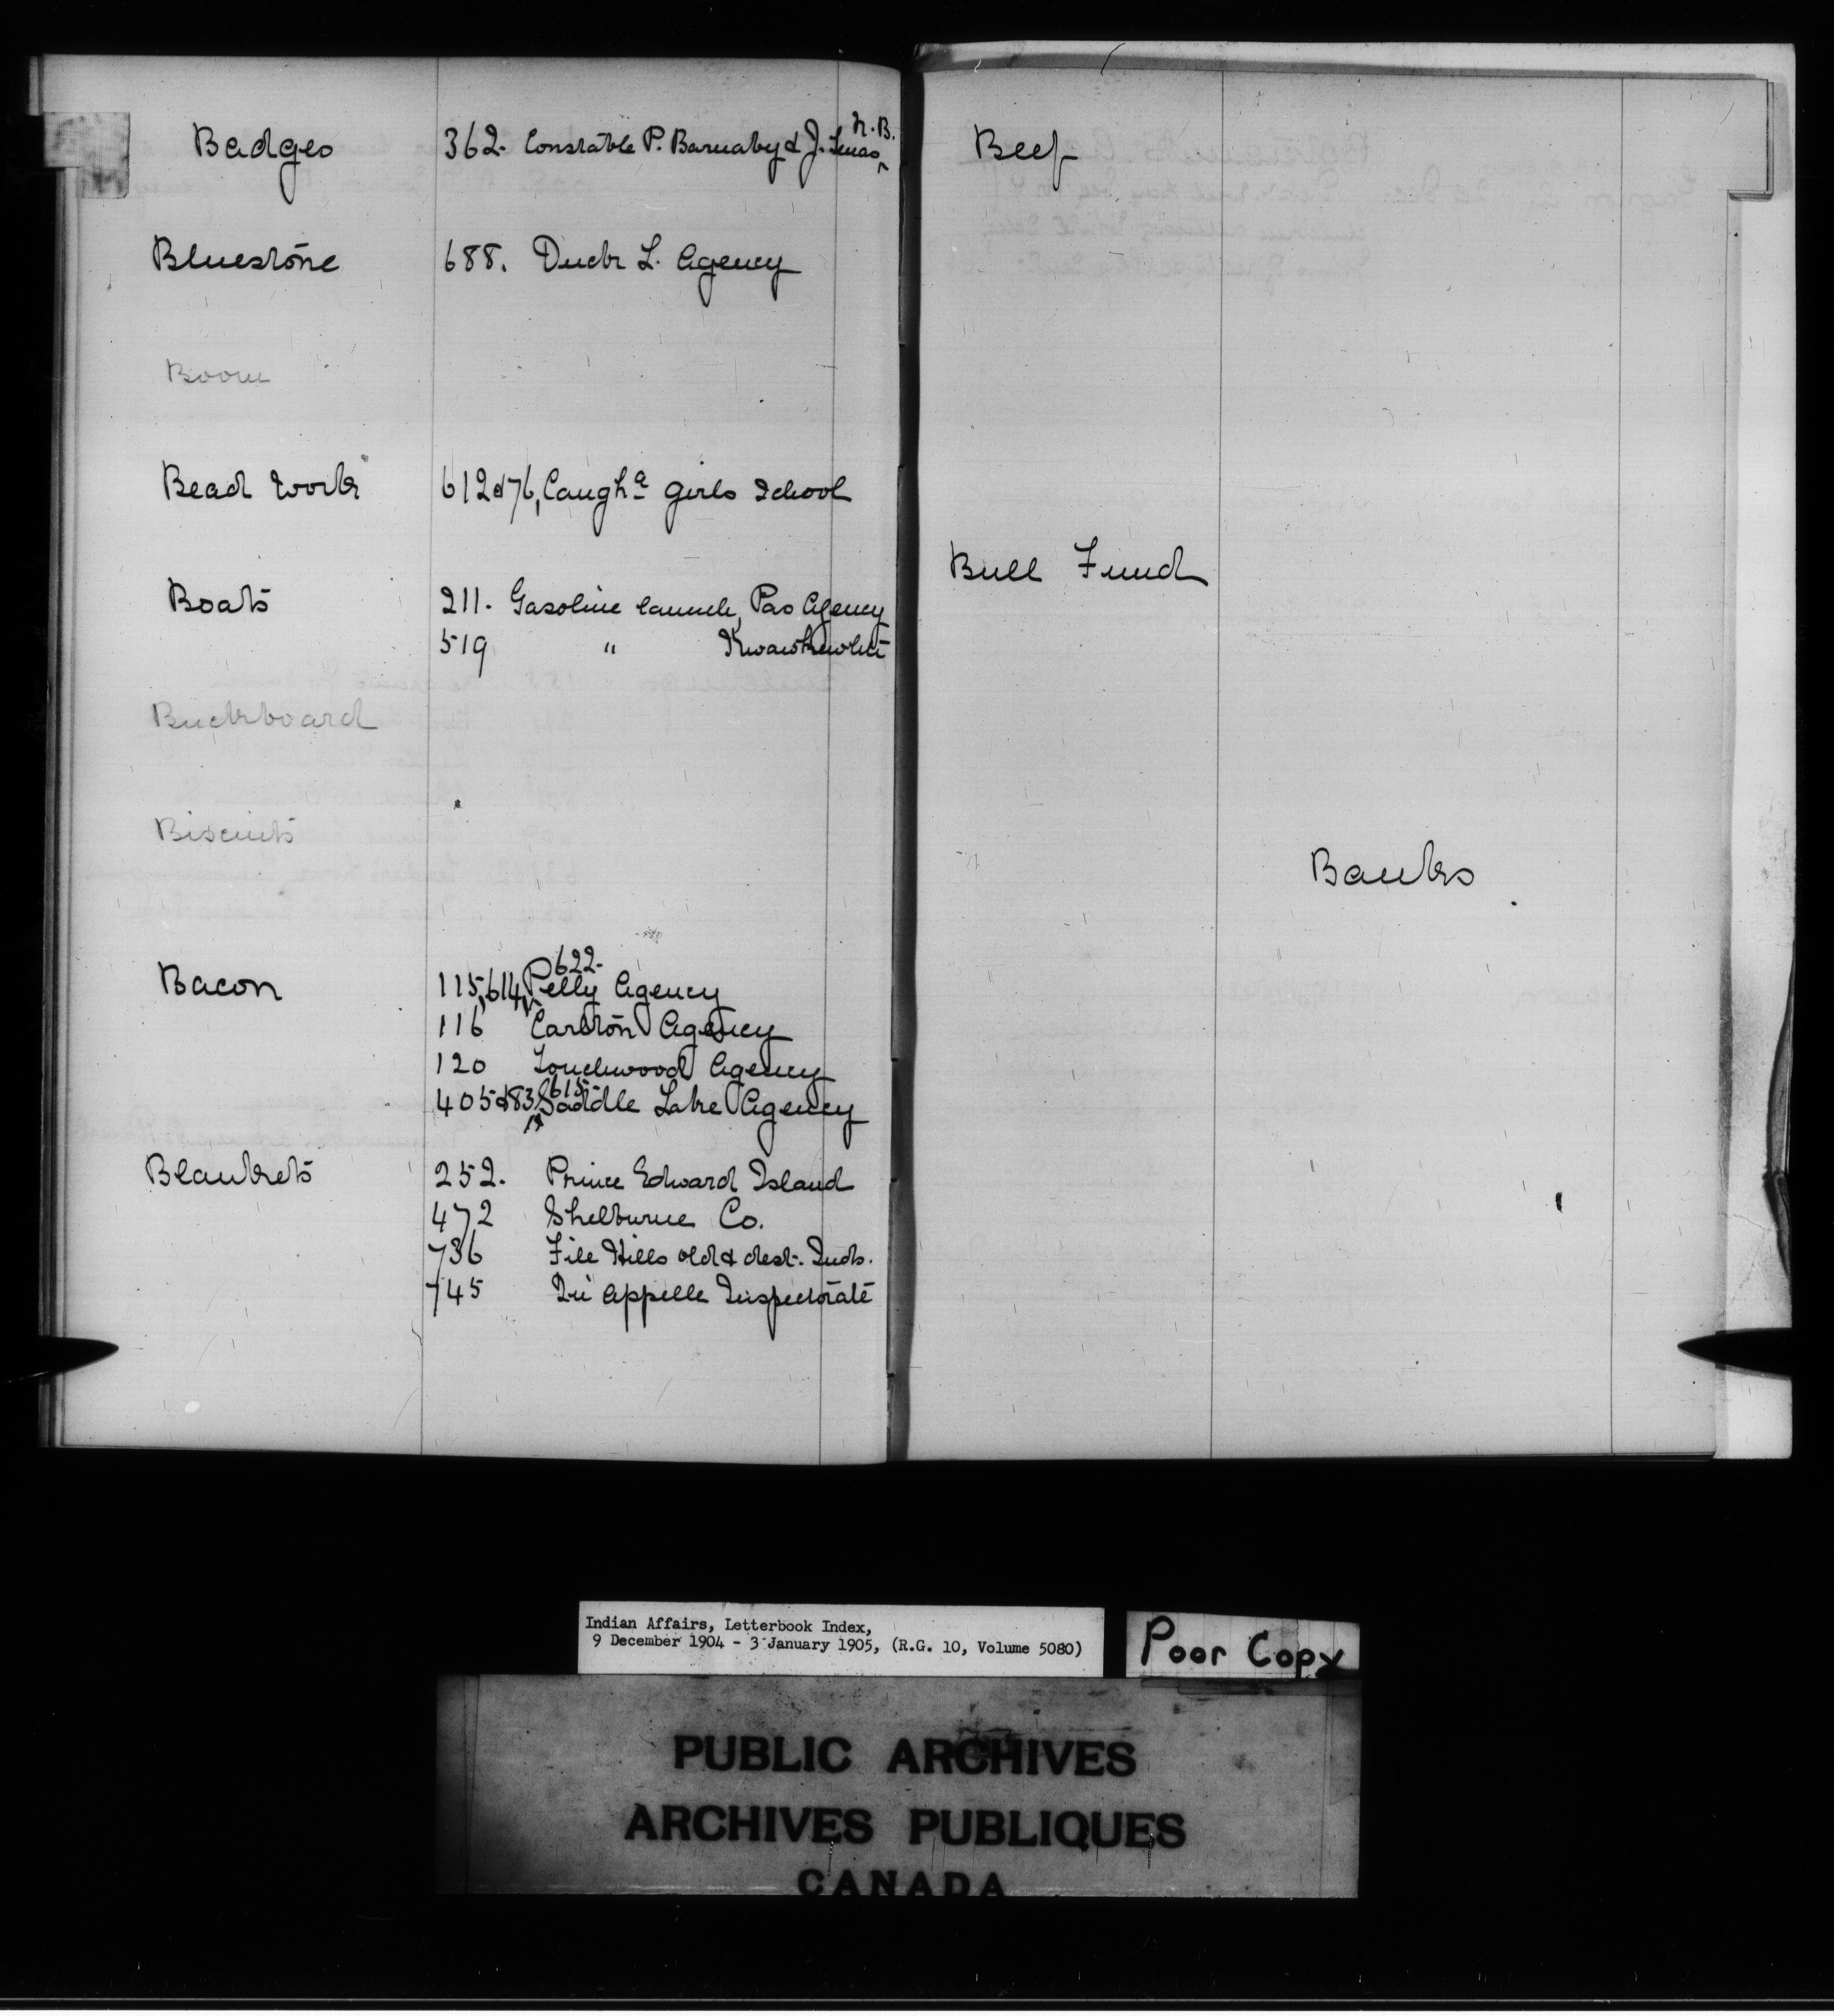 Badges 362. Constable P. Barnaby & J. N.B.
Bluestone 688. Duck L. Agency
Boom
Bead work 612&76, Caugha Girls School
Boats 211. Gasoline launch, Pas Agency
519 " Kwawkewlth
Buckboard
Biscuits
Bacon 115, 614, 622. Pelly Agency
116 Carlton Agency
120 Touchwood Agency
405&83, 615 Saddle Lake Agency
Blankets 252. Prince Edward Island
472 Shelburne Co.
736 File Hills old & dest. Inds.
745 Qu'Appelle Inspectorate
Beef
Bull Fund
Banks
Indian Affairs, Letterbook Index,
9 December 1904 - 3 January 1905, (R.G. 10, Volume 5080)
Poor Copy
PUBLIC ARCHIVES
ARCHIVES PUBLIQUES
CANADA